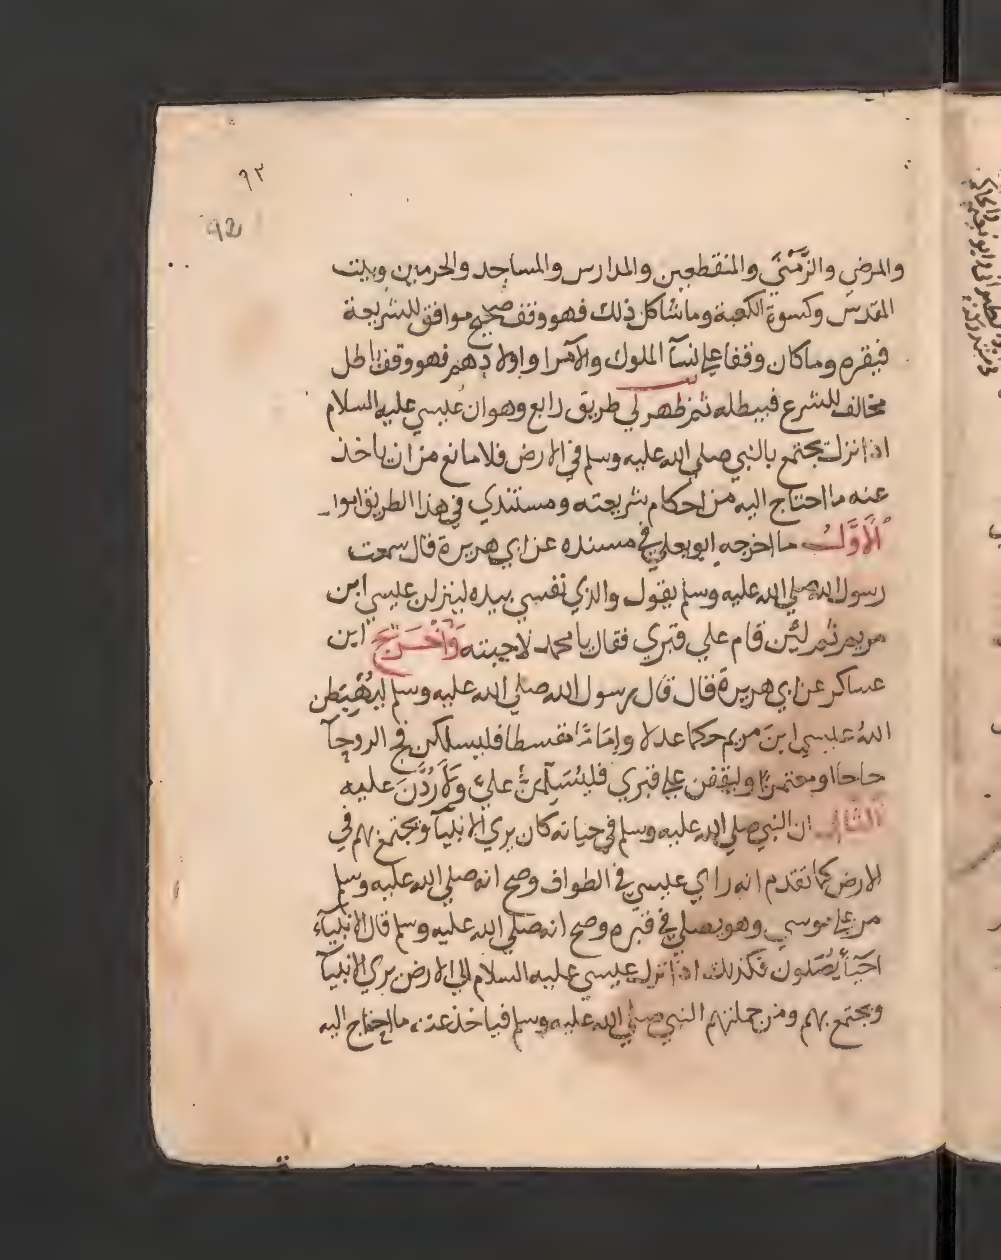 ٩٣
92
والمرضى والزَّمْنَى والمنقطعين والمدارس والمساجد والحرمين وبيت
المقدس وكسوة الكعبة وما شاكل ذلك فهو وقف صحيح موافق للشريعة
فيقره وما كان وقفا على نسآ الملوك والامرا واولادهم فهو وقف باطل
مخالف للشرع فيبطله ثم ظهر لي طريق رابع وهو ان عيسي عليه السلام
اذا نزل يجتمع بالنبي صلي الله عليه وسلم في الارض فلا مانع من ان ياخذ
عنه ما احتاج اليه من احكام شريعته ومستندي في هذا الطريق امور
الاوَّلُ ما اخرجه ابو يعلي في مسنده عن ابي هريرة قال سمعت
رسول الله صلي الله عليه وسلم يقول والذي نفسي بيده لينزلن عيسي ابن
مريم ثم لئن قام علي قبري فقال يا محمد لاجبته وَاَخْرَجَ ابن
عساكر عن ابي هريرة قال قال رسول الله صلي الله عليه وسلم ليُهْبِطَن
اللهُ عيسي ابنَ مريم حكما عدلا وإمَامًا مقسطا فليسلكن فج الروحآ
حاجا او معتمرًا وليقفن علي قبري فليُسَلِّمَنَّ عليَّ ولَأَرُدَّنَّ عليه
الثاني ان النبي صلي الله عليه وسلم في حياته كان يري الانبيآ ويجتمع بهم في
الارض كما تقدم انه راي عيسي في الطواف وصح انه صلي الله عليه وسلم
مر علي موسي وهو يصلي في قبره وصح انه صلي الله عليه وسلم قال الانبيآء
احيآ يُصَلون فكذلك اذا نزل عيسي عليه السلام الي الارض يري الانبيآ
ويجتمع بهم ومن جملتهم النبي صلي الله عليه وسلم فياخذ عنه ما احتاج اليه